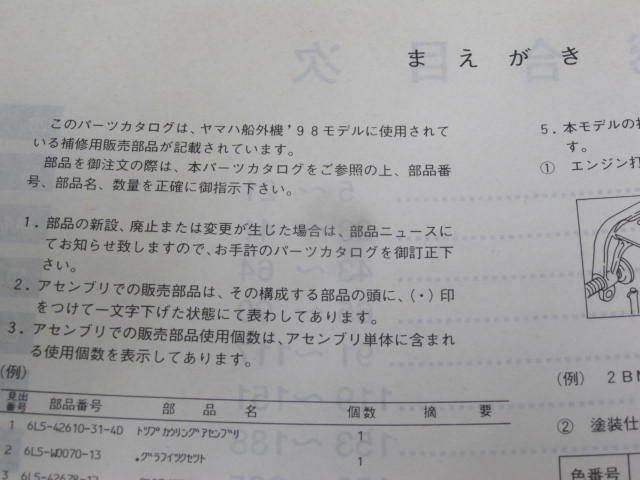 まえがき
このパーツカタログは、ヤマハ船外機'98モデルに使用されて
いる補修用販売部品が記載されています。
部品を御注文の際は、本パーツカタログをご参照の上、部品番
号、部品名、数量を正確に御指示下さい。
1．部品の新設、廃止または変更が生じた場合は、部品ニュースに
てお知らせ致しますので、お手許のパーツカタログを御訂正下
さい。
2．アセンブリでの販売部品は、その構成する部品の頭に、(・)印
をつけて一文字下げた状態にて表わしてあります。
3．アセンブリでの販売部品使用個数は、アセンブリ単体に含まれ
る使用個数を表示してあります。
(例)
見出番号 部品番号 部品名 個数 摘要
1 6L5-42610-31-4D トツプ カウリングアセンブリ 1
2 6L5-W0070-13 .グラフイツクセツト 1
3 6L5-42678-13
5．本モデルの
す。
① エンジン打
(例) 2BN
② 塗装仕
色番号